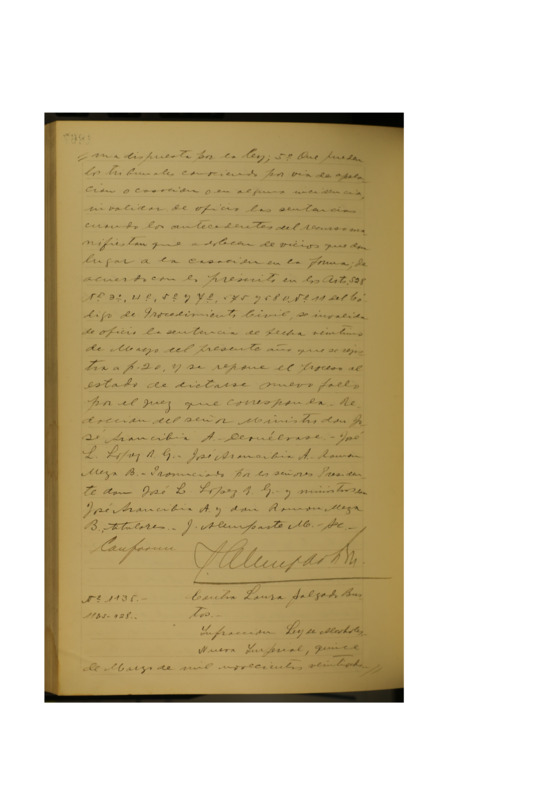 ma dispuesta por la ley; 5º Que pueden
los tribunales conociendo por vía de apela-
ción o casación o en alguna incidencia,
invalidar de oficio las sentencias
cuando los antecedentes del recurso ma
nifiestan que adolecen de vicios que dan
lugar a la casación en la forma; de
acuerdo con lo prescrito en los Arts. 
del Có
digo de Procedimiento Civil, se invalida
de oficio la sentencia de fecha veintiuno
de Marzo del presente año que se regis
tra a f. 20, y se repone el proceso al
estado de dictarse nuevo fallo
por el Juez que corresponda. Re-
dacción del señor Ministro don Jo
sé Arancibia A. Devuélvase. José
L. López R. G. José Arancibia A. Ramon
Meza B. Pronunciado por los señores Presiden
te don José L. López R. G. y ministros don
José Arancibia A. y don Ramon Meza
B. titulares. J. M.
Conforme
Nº 1138.-
Contra Laura Salgado Bus
tos.-
Infracción Ley de Alcoholes
Nueva Imperial, quince
de Marzo de mil novecientos veintiocho